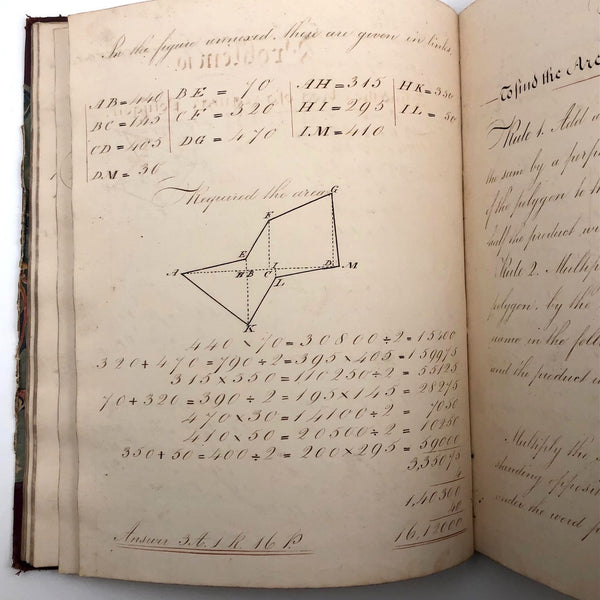 In the figure annexed there are given in links
AB = 440 BE = 70 AH = 315 HK = 350
BC = 145 CF = 320 HI = 295 IL = 50
CD = 405 DG = 470 IM = 410
DM = 30
Required the area
G
F
E
A H B C I D M
L
K
440 × 70 = 30800 ÷ 2 = 15400
320 + 470 = 790 ÷ 2 = 395 × 405 = 159975
315 × 350 = 110250 ÷ 2 = 55125
70 + 320 = 390 ÷ 2 = 195 × 145 = 28275
470 × 30 = 14100 ÷ 2 = 7050
410 × 50 = 20500 ÷ 2 = 10250
350 + 50 = 400 ÷ 2 = 200 × 295 = 59000
3,35075
4
1,40300
40
16,12000
Answer 3A. 1 R. 16 P.
To find the Are
Rule 1. Add a
the sum by a perp
of the polygon to th
half the product wi
Rule 2. Multip
polygon by the
name in the foll
and the product w
Multiply the
standing opposi
under the word p